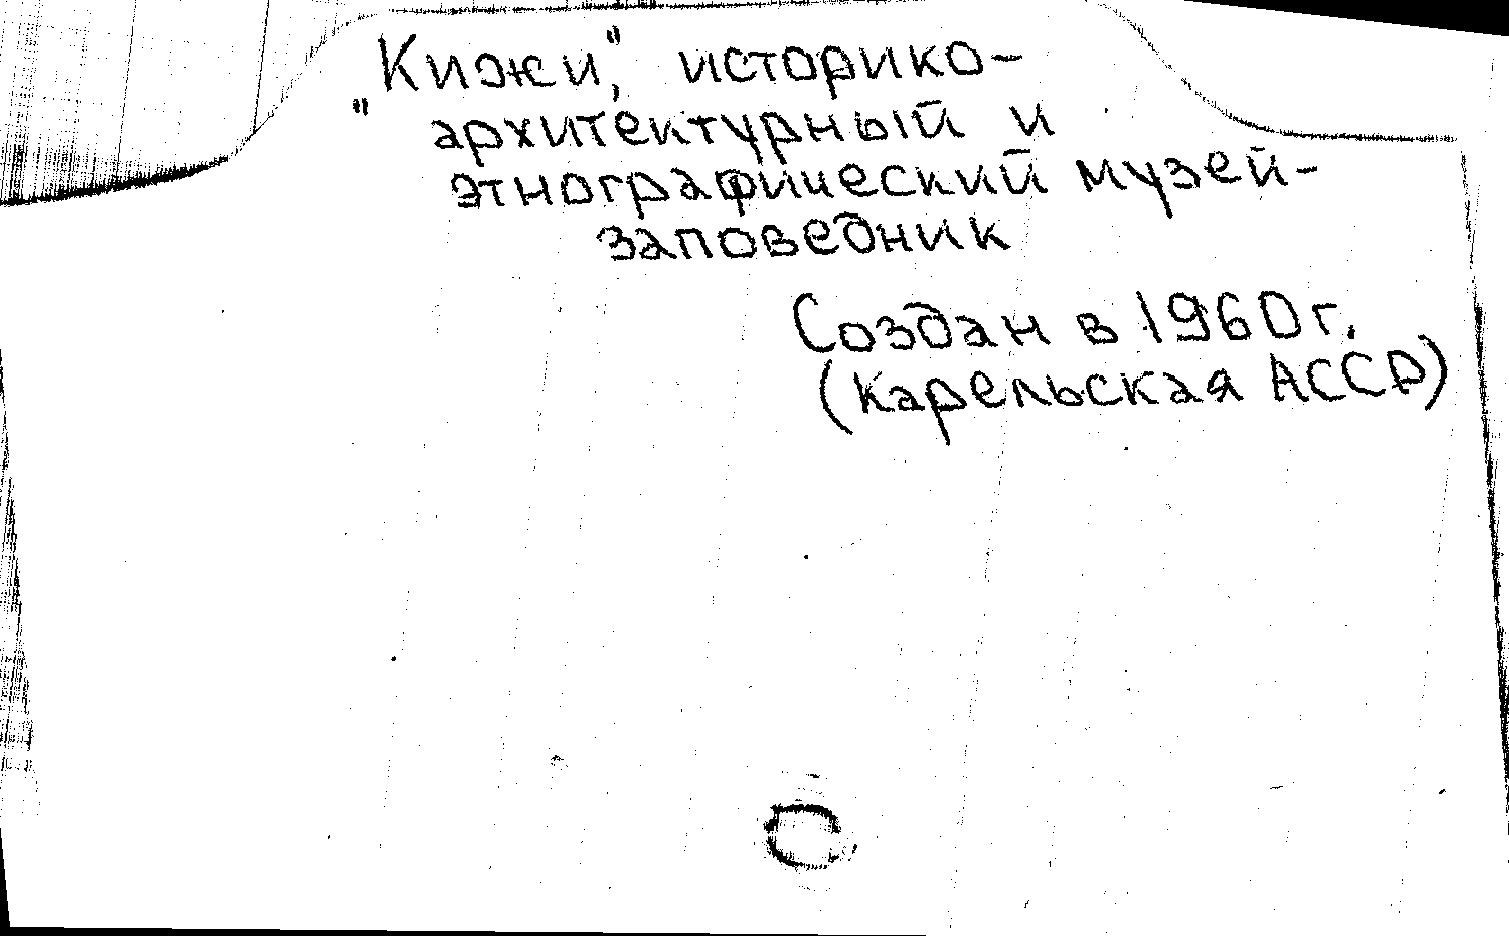 "Кижи", историко-
архитектурный и
этнографический музей-
заповедник
Создан в 1960 г.
(Карельская АССР)